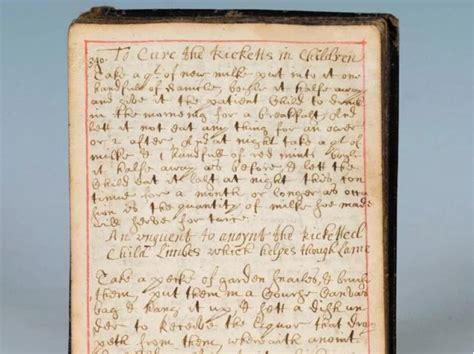 To Cure the Ricketts in Children
340. Take a qt of new milke put into it one
handfull of daniele, boyle it halfe away
and give it the patient Child to drink
in the morning for a breakfast, And
lett it not eat any thing for an ower
or 2 after And at night take a qt of
milke & 1 handfull of red mints boyle
it halfe away as before, & lett the
Child eat it last at night this con
tinue for a month or longer as occa
tion is the quantity of milke soe made
will serve for twice.
An unguent to anoynt the Ricketted
Child Limbes which helpes though Lame
Take a pecke of garden snailes, & bruise
them, put them in a Course Canvas
bag & hang it up, & sett a dish un
der to Receive the liquor that drop
peth from them, wherewith anoint